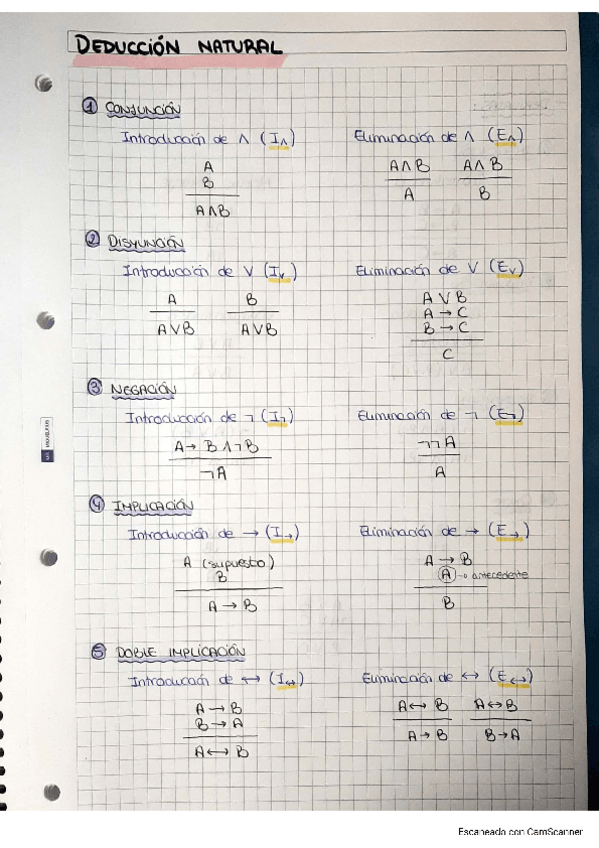 DEDUCCIÓN NATURAL
1 CONJUNCIÓN
Introducción de ∧ (I∧)
A
B
A∧B
Eliminación de ∧ (E∧)
A∧B
A
A∧B
B
2 DISYUNCIÓN
Introducción de ∨ (I∨)
A
A∨B
B
A∨B
Eliminación de ∨ (E∨)
A∨B
A→C
B→C
C
3 NEGACIÓN
Introducción de ¬ (I¬)
A→ B∧¬B
¬A
Eliminación de ¬ (E¬)
¬¬A
A
4 IMPLICACIÓN
Introducción de → (I→)
A (supuesto)
B
A→B
Eliminación de → (E→)
A→B
A → antecedente
B
5 DOBLE IMPLICACIÓN
Introducción de ↔ (I↔)
A→B
B→A
A↔B
Eliminación de ↔ (E↔)
A↔B
A→B
A↔B
B→A
Escaneado con CamScanner